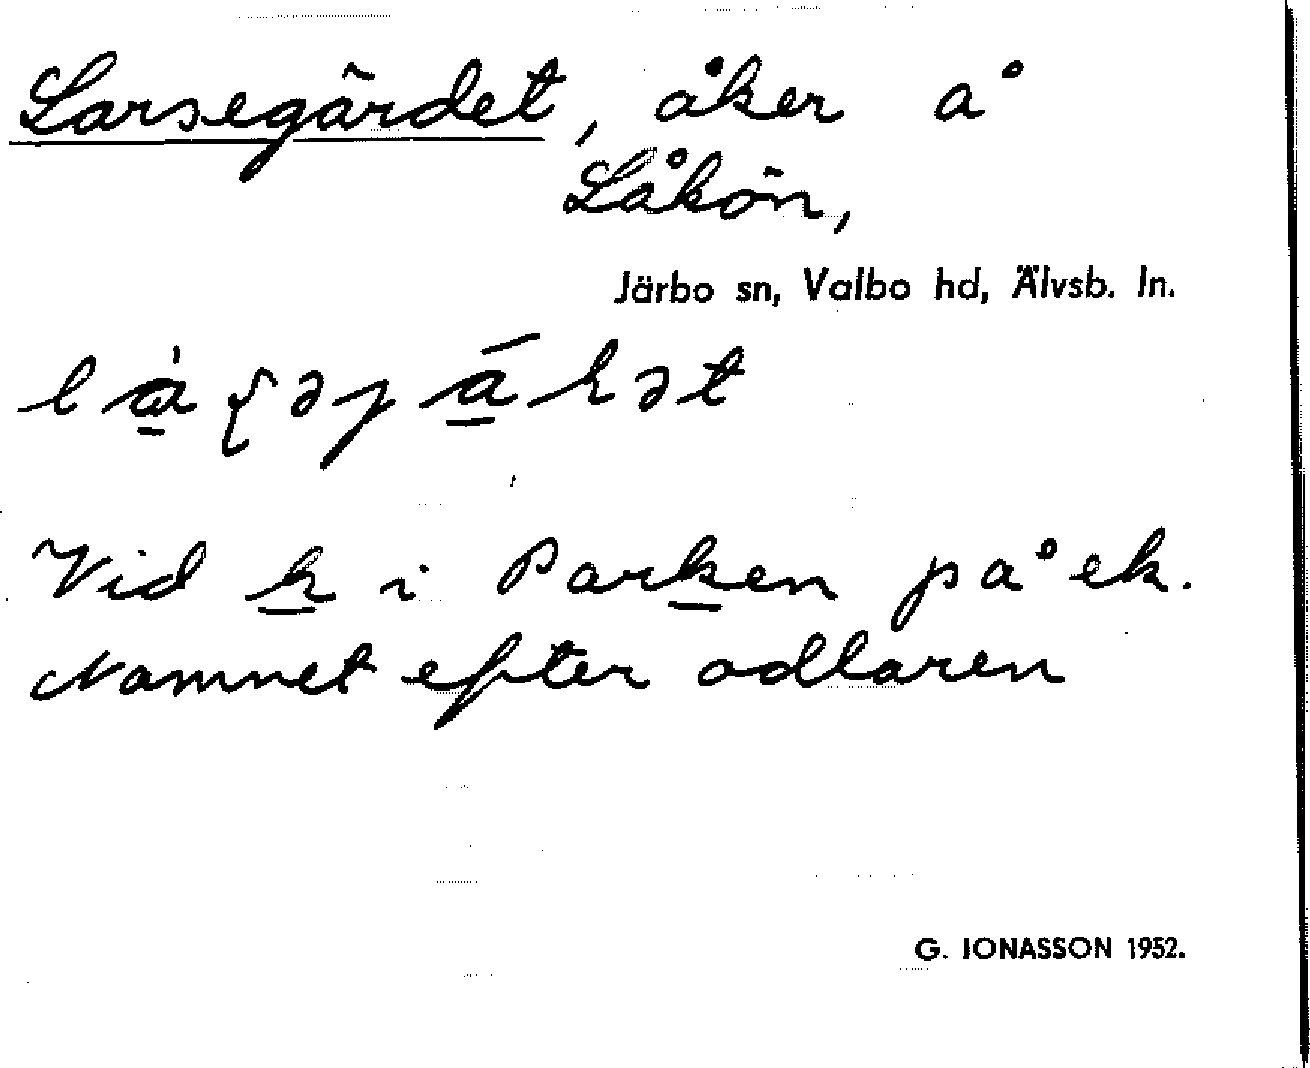 Larsegärdet, åker å
Låkön,
Järbo sn, Valbo hd, Älvsb. ln.
Vid k i Parken på ek.
Namnet efter odlaren
G. JONASSON 1952.